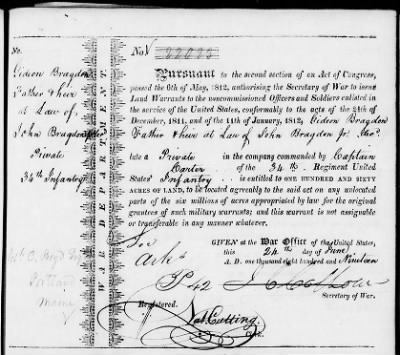 No.
Gideon Bragdon
Father & heir
at Law of
John Bragdon
Private
34th Infantry
Portland
Maine
WAR DEPARTMENT
No.
Pursuant to the second section of an Act of Congress,
passed the 6th of May, 1812, authorising the Secretary of War to issue
Land Warrants to the noncommissioned Officers and Soldiers enlisted in
the service of the United States, conformably to acts of the 24th of
December, 1811, and of the 11th of January, 1812, Gideon Bragdon
Father & heir at Law of John Bragdon Jr.
late a Private in the company commanded by Captain
Carter of the 34th Regiment United
States' Infantry is entitled to ONE HUNDRED AND SIXTY
ACRES OF LAND, to be located agreeably to the said act on any unlocated
parts of the six millions of acres appropriated by law for the original
grantees of such military warrants; and this warrant is not assignable
or transferable in any manner whatever.
GIVEN at the War Office of the United States,
this 24th day of June
A. D. one thousand eight hundred and Nineteen
J C Calhoun
Secretary of War.
Registered.
Nat Cutting